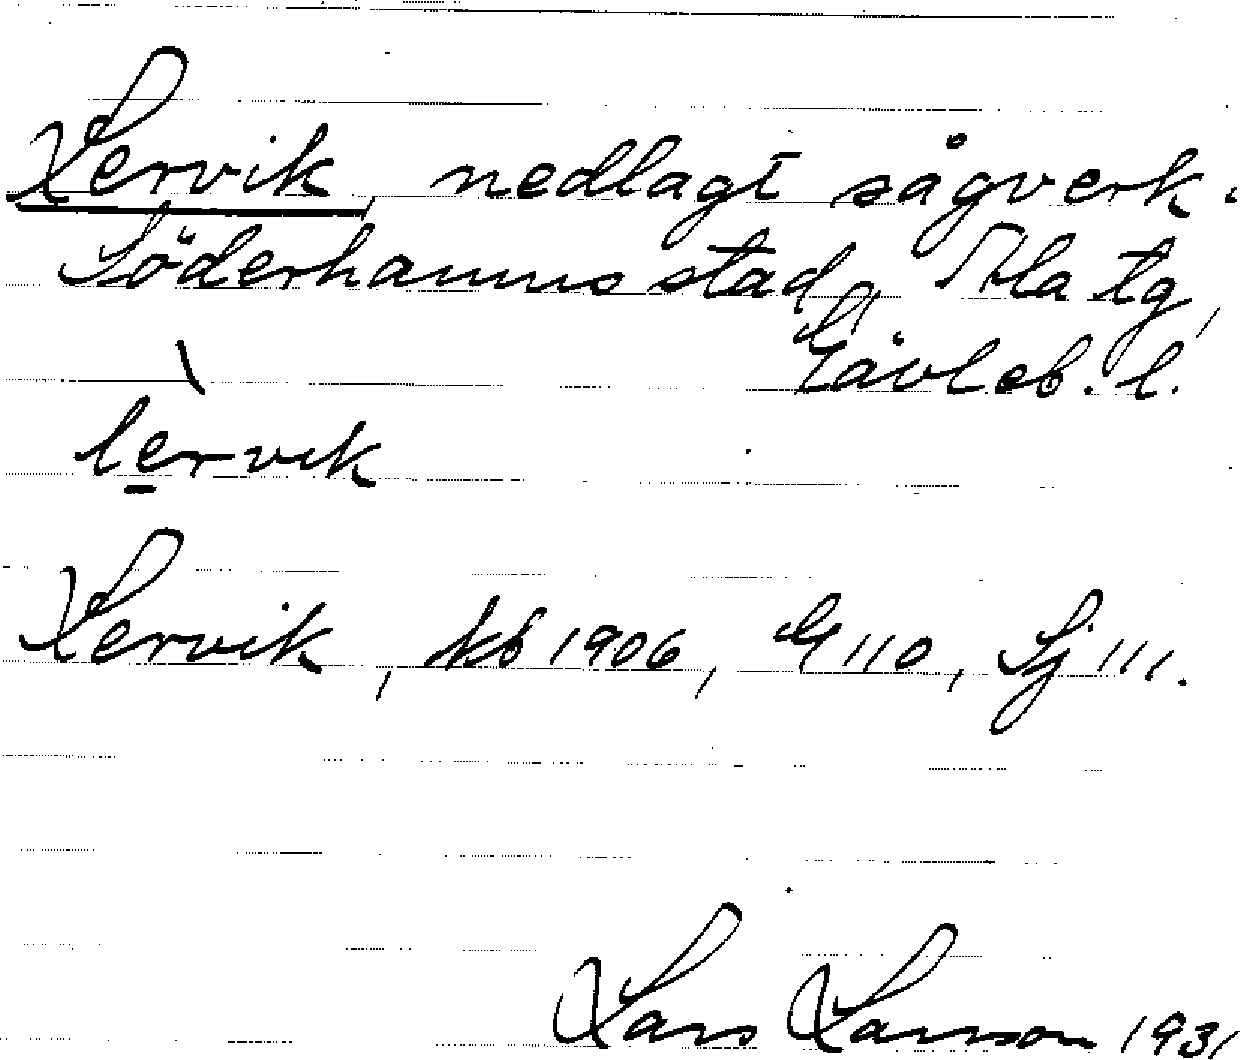 Lervik, nedlagt sågverk.
Söderhamns stad, Ala tg,
Gävleb. l.
lèrvik
Lervik, kb 1906, G 110, Sj 111.
Lars Larsson 1931